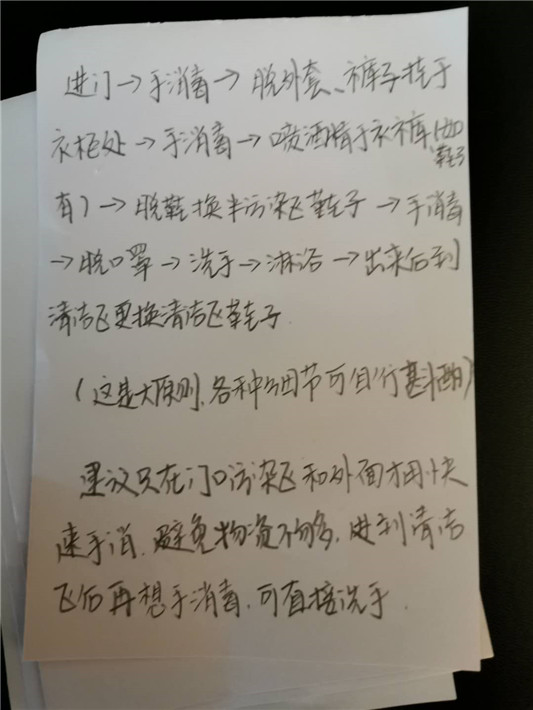 进门→手消毒→脱外套、裤子挂于
衣柜处→手消毒→喷酒精于衣裤(如
鞋子
有)→脱鞋换半污染区鞋子→手消毒
→脱口罩→洗手→淋浴→出来后到
清洁区更换清洁区鞋子
(这是大原则,各种细节可自行斟酌)
建议只在门口污染区和外面才用快
速手消,避免物资不够多,进到清洁
区后再想手消毒,可直接洗手.